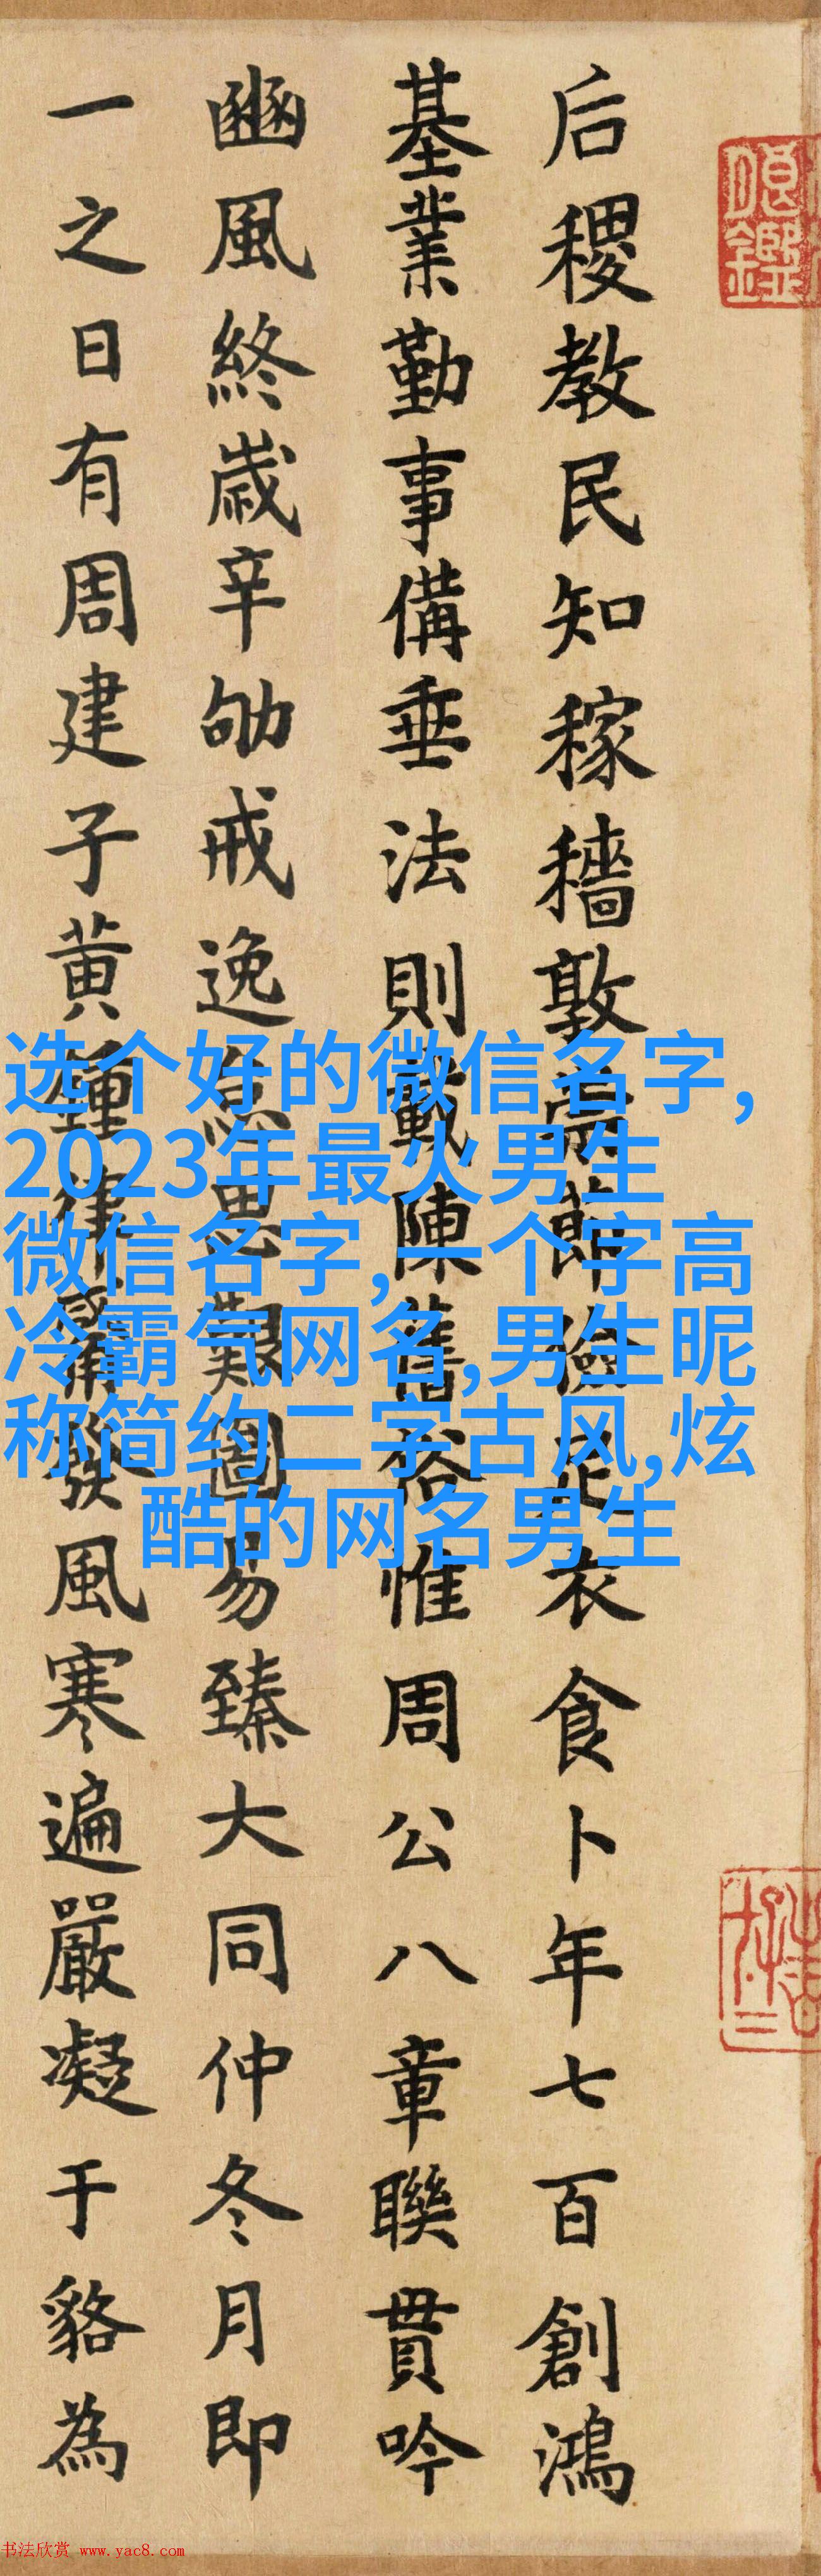 后稷教民知稼穡敦崇節儉足衣食卜年七百創鴻
基業勤事備垂法則載陳舊俗惟周公八章聯貫吟
豳風終歲辛劬戒逸怠思艱圖易臻大同仲冬月即
一之日有周建子黃鍾律觱發風寒遍嚴凝于貉為
选个好的微信名字,
2023年最火男生
微信名字,一个字高
冷霸气网名,男生昵
称简约二字古风,炫
酷的网名男生
书法欣赏 www.yac8.com